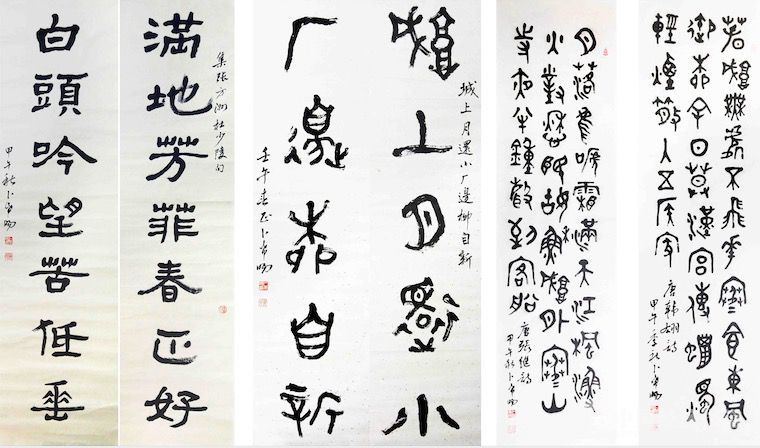 滿地芳菲春正好
集張方洲杜少陵句
白頭吟望苦低垂
甲午秋卜
城上月還小
城上月還小厂邊柳自新
厂邊柳自新
壬午春正卜
月落烏啼霜滿天江楓漁
火對愁眠姑蘇城外寒山
寺夜半鐘聲到客船
唐張繼詩
甲午秋卜
春城無處不飛花寒食東風
御柳斜日暮漢宮傳蠟燭
輕煙散入五侯家
唐韓翃詩
甲午季秋卜